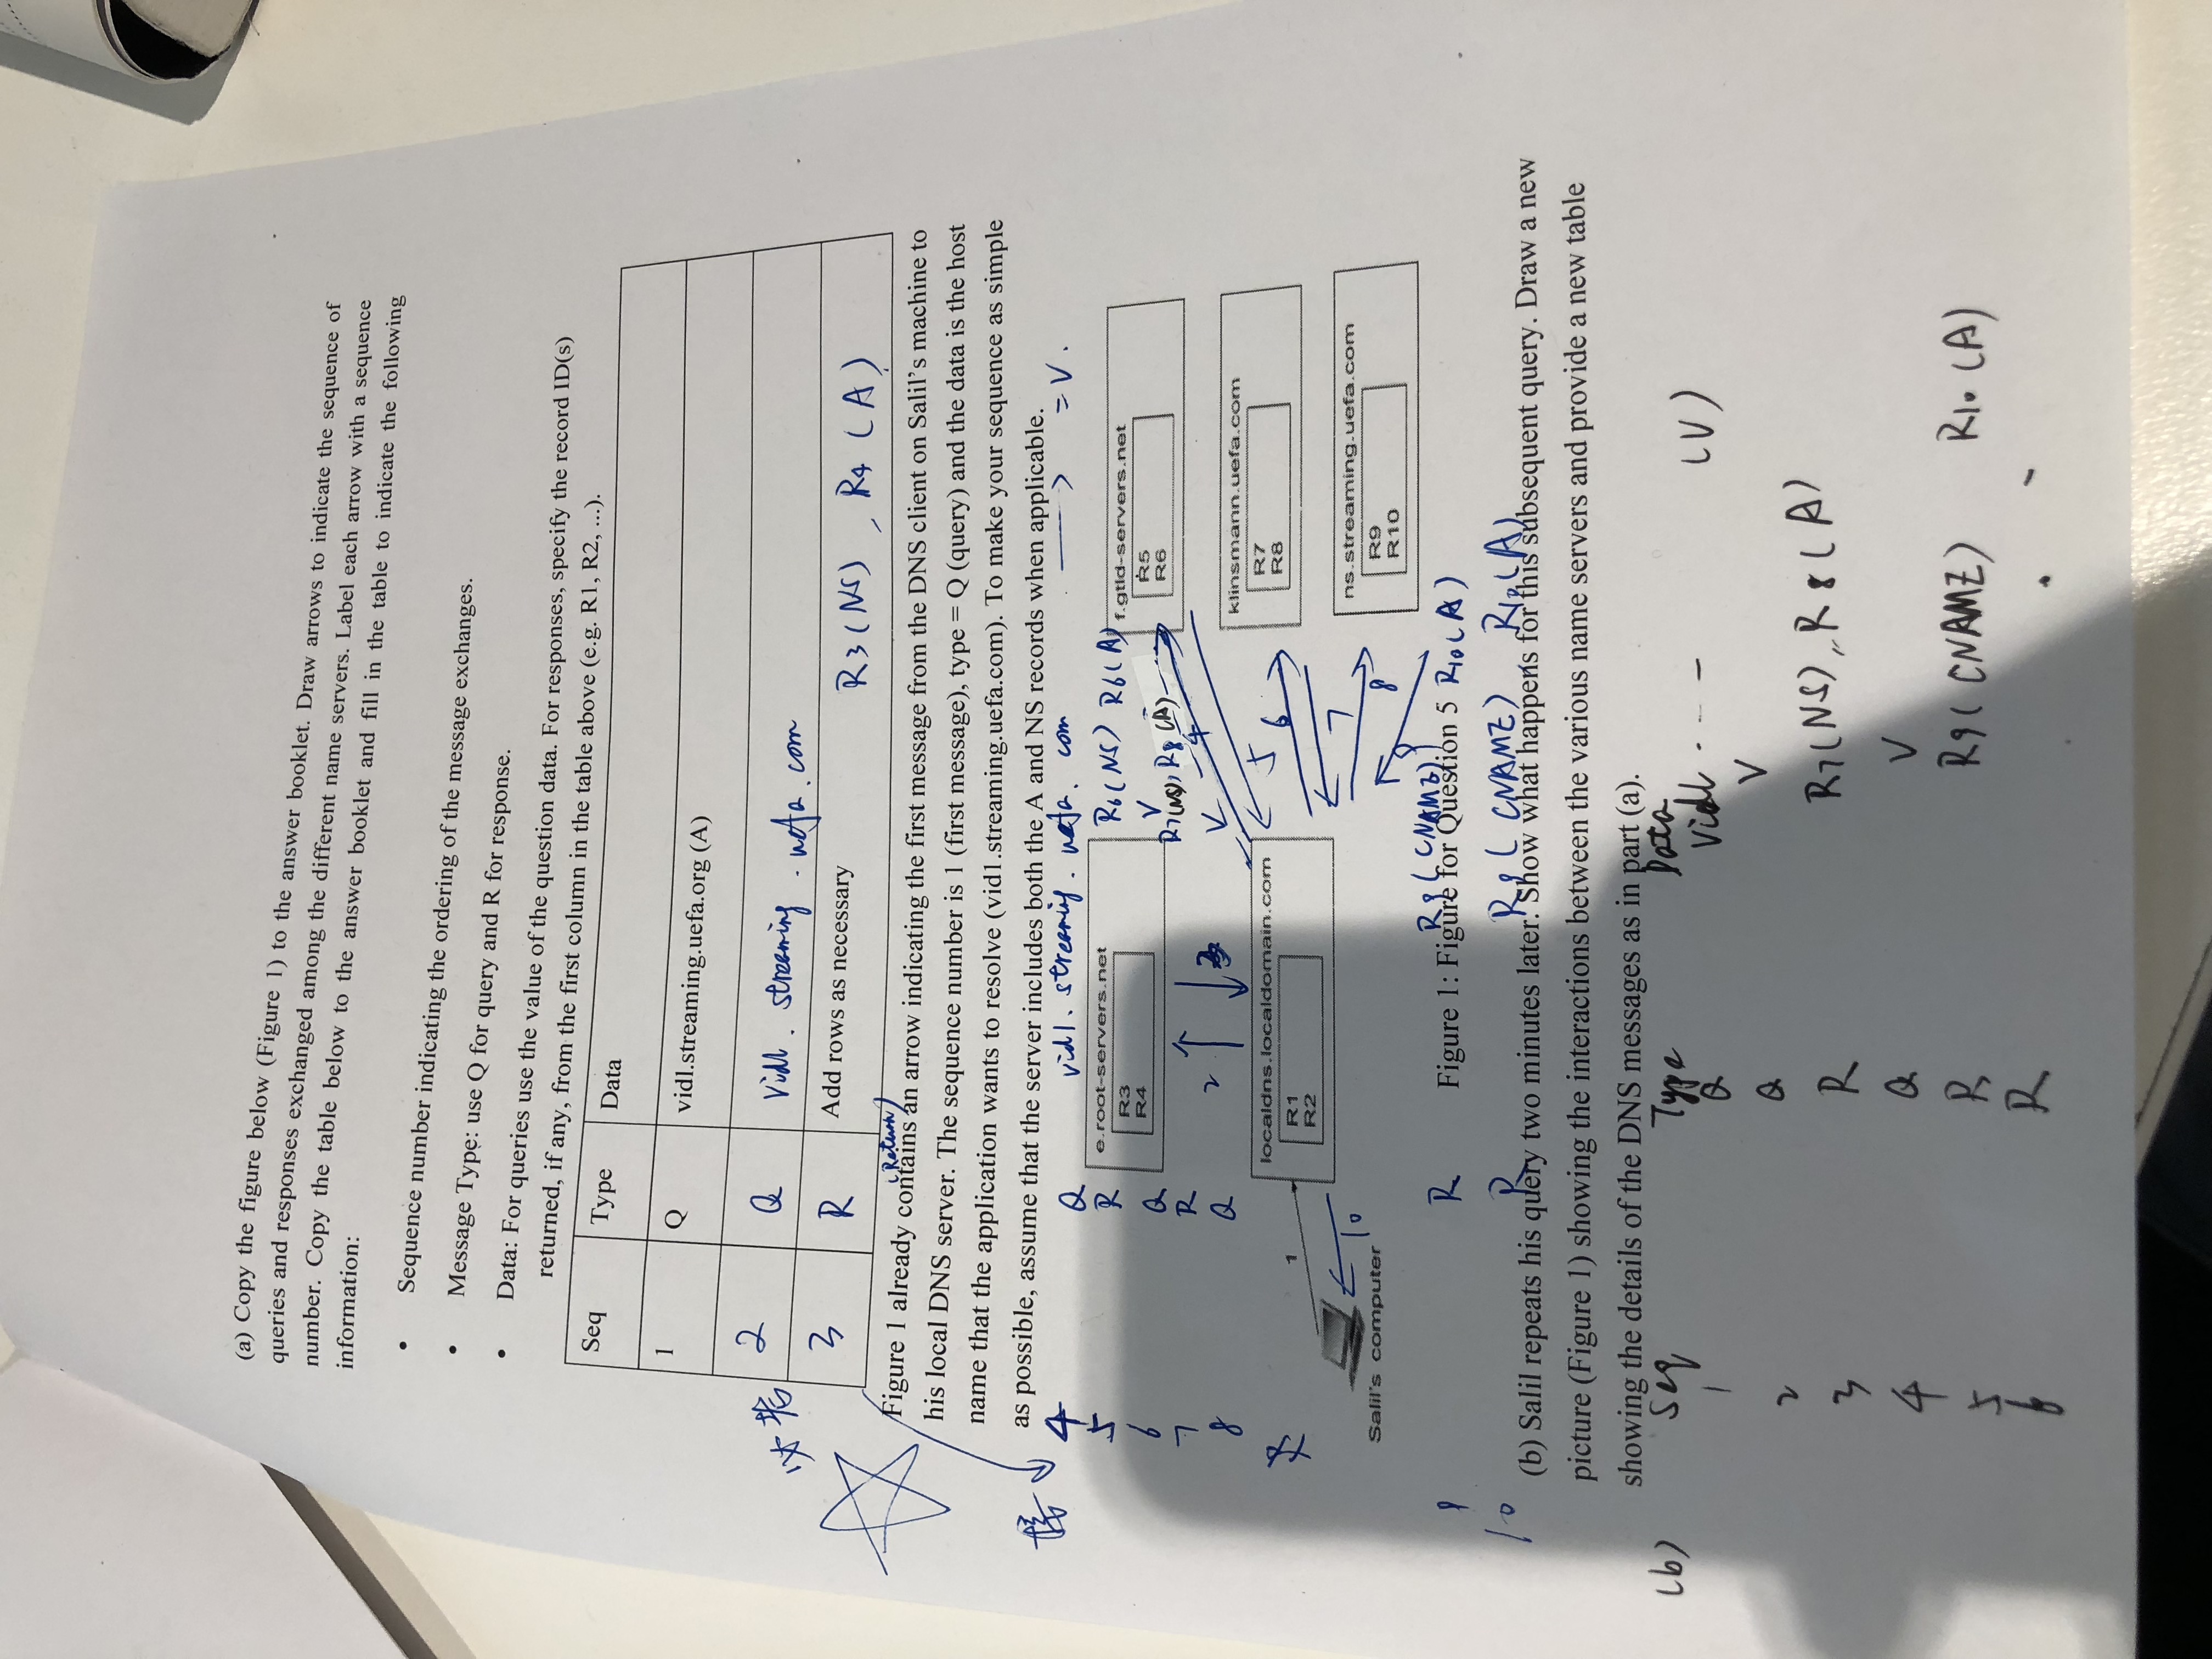 (a) Copy the figure below (Figure 1) to the answer booklet. Draw arrows to indicate the sequence of
queries and responses exchanged among the different name servers. Label each arrow with a sequence
number. Copy the table below to the answer booklet and fill in the table to indicate the following
information:
• Sequence number indicating the ordering of the message exchanges.
• Message Type: use Q for query and R for response.
• Data: For queries use the value of the question data. For responses, specify the record ID(s)
returned, if any, from the first column in the table above (e.g. R1, R2, ...).
Seq Type Data
1 Q vidl.streaming.uefa.org (A)
2 Q vidl. streaming. uefa.com
必考
3 R Add rows as necessary R3(NS), R4 (A)
(Return)
Figure 1 already contains an arrow indicating the first message from the DNS client on Salil's machine to
his local DNS server. The sequence number is 1 (first message), type = Q (query) and the data is the host
name that the application wants to resolve (vid1.streaming.uefa.com). To make your sequence as simple
as possible, assume that the server includes both the A and NS records when applicable.
接 4 Q vidl. streaming. uefa. com = V.
5 R e.root-servers.net R6(NS) R6(A) f.gtld-servers.net
R3 R5
6 Q R4 V R6
7 R R7(NS), R8 (A)
8 Q V
2 3 4 5 6 7 8 10
klinsmann.uefa.com
R7
R8
localdns.localdomain.com
R1
R2
1
ns.streaming.uefa.com
R9
R10
Salil's computer
9 R R9(CNAME) R10(A)
Figure 1: Figure for Question 5
10 R R9(CNAME), R10(A)
(b) Salil repeats his query two minutes later. Show what happens for this subsequent query. Draw a new
picture (Figure 1) showing the interactions between the various name servers and provide a new table
showing the details of the DNS messages as in part (a).
(b) Seq Type Data
1 Q vidl. - - - (V)
2 Q V
3 R R7(NS), R8(A)
4 Q V
5 R R9(CNAME) R10(A)
6 R